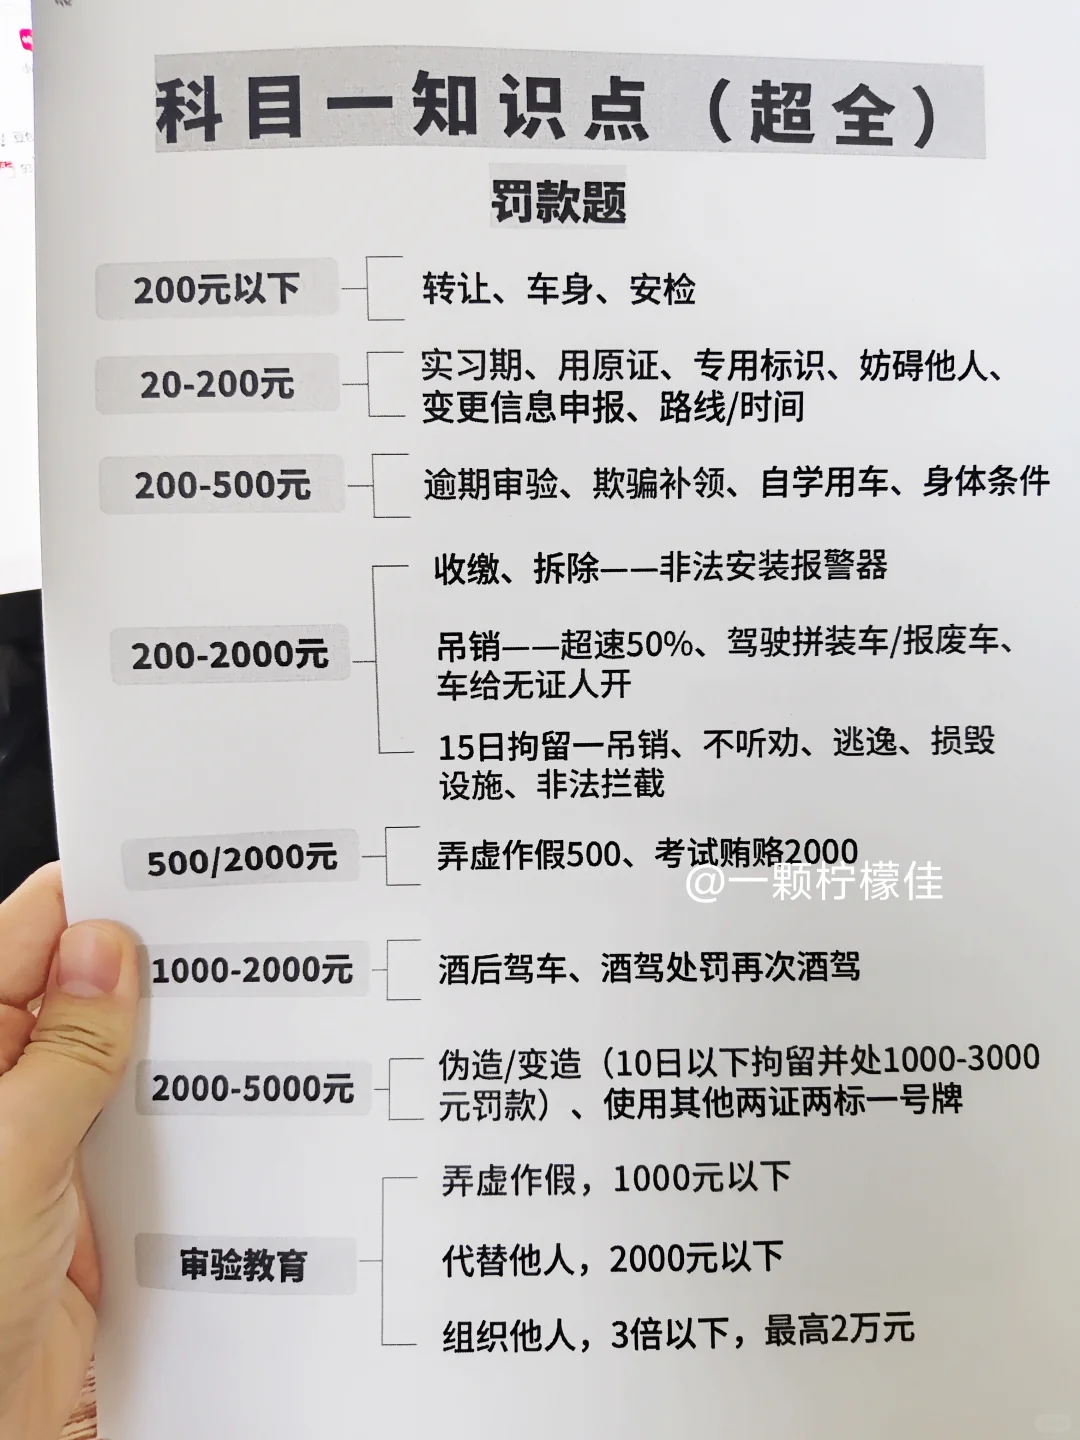 科目一知识点（超全）
罚款题
200元以下
转让、车身、安检
20-200元
实习期、用原证、专用标识、妨碍他人、
变更信息申报、路线/时间
200-500元
逾期审验、欺骗补领、自学用车、身体条件
200-2000元
收缴、拆除——非法安装报警器
吊销——超速50%、驾驶拼装车/报废车、
车给无证人开
15日拘留一吊销、不听劝、逃逸、损毁
设施、非法拦截
500/2000元
弄虚作假500、考试贿赂2000
@一颗柠檬佳
1000-2000元
酒后驾车、酒驾处罚再次酒驾
2000-5000元
伪造/变造（10日以下拘留并处1000-3000
元罚款）、使用其他两证两标一号牌
审验教育
弄虚作假，1000元以下
代替他人，2000元以下
组织他人，3倍以下，最高2万元